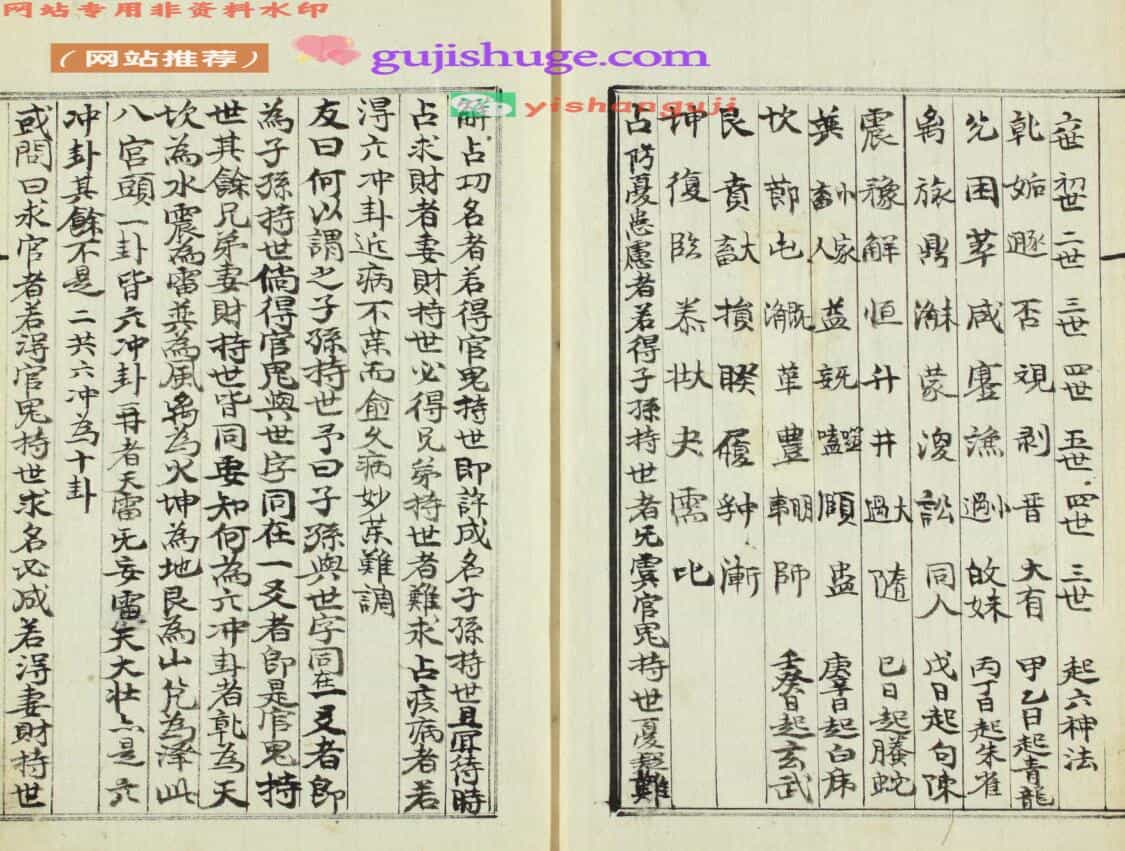 网站专用非资料水印
（网站推荐）
gujishuge.com
yishanguji
六世 初世 二世 三世 四世 五世 四世 三世 起六神法
乹 姤 遯 否 观 剥 晋 大有 甲乙日起青龍
兊 困 萃 咸 蹇 謙 小過 故妹 丙丁日起朱雀
禼 旅 鼎 未濟 蒙 渙 訟 同人 戊日起句陳
震 豫 解 恒 升 井 大過 隨 巳日起螣蛇
巽 小畜 家人 益 无妄 噬嗑 頤 蛊 庚辛日起白虎
坎 節 屯 既濟 革 豊 明夷 師 壬癸日起玄武
艮 賁 大畜 損 睽 履 中孚 漸
坤 復 臨 泰 大壮 夬 需 比
占防憂患慮者若得子孫持世者无虞官鬼持世憂 難
解占功名者若得官鬼持世即許成名子孫持世且宜待時
占求財者妻財持世必得兄弟持世者難求占疾病者若
得六冲卦近病不藥而愈久病妙藥難調
友曰何以謂之子孫持世予曰子孫與世字同在一爻者即
為子孫持世倘得官鬼與世字同在一爻者即是官鬼持
世其餘兄弟妻財持世皆同要知何為六冲卦者乹為天
坎為水震為雷巽為風禼為火坤為地艮為山兊為泽此
八宫頭一卦皆六冲卦再者天雷无妄雷天大壮亦是六
冲卦其餘不是二共六冲為十卦
或問曰求官者若得官鬼持世求名必成若得妻財持世